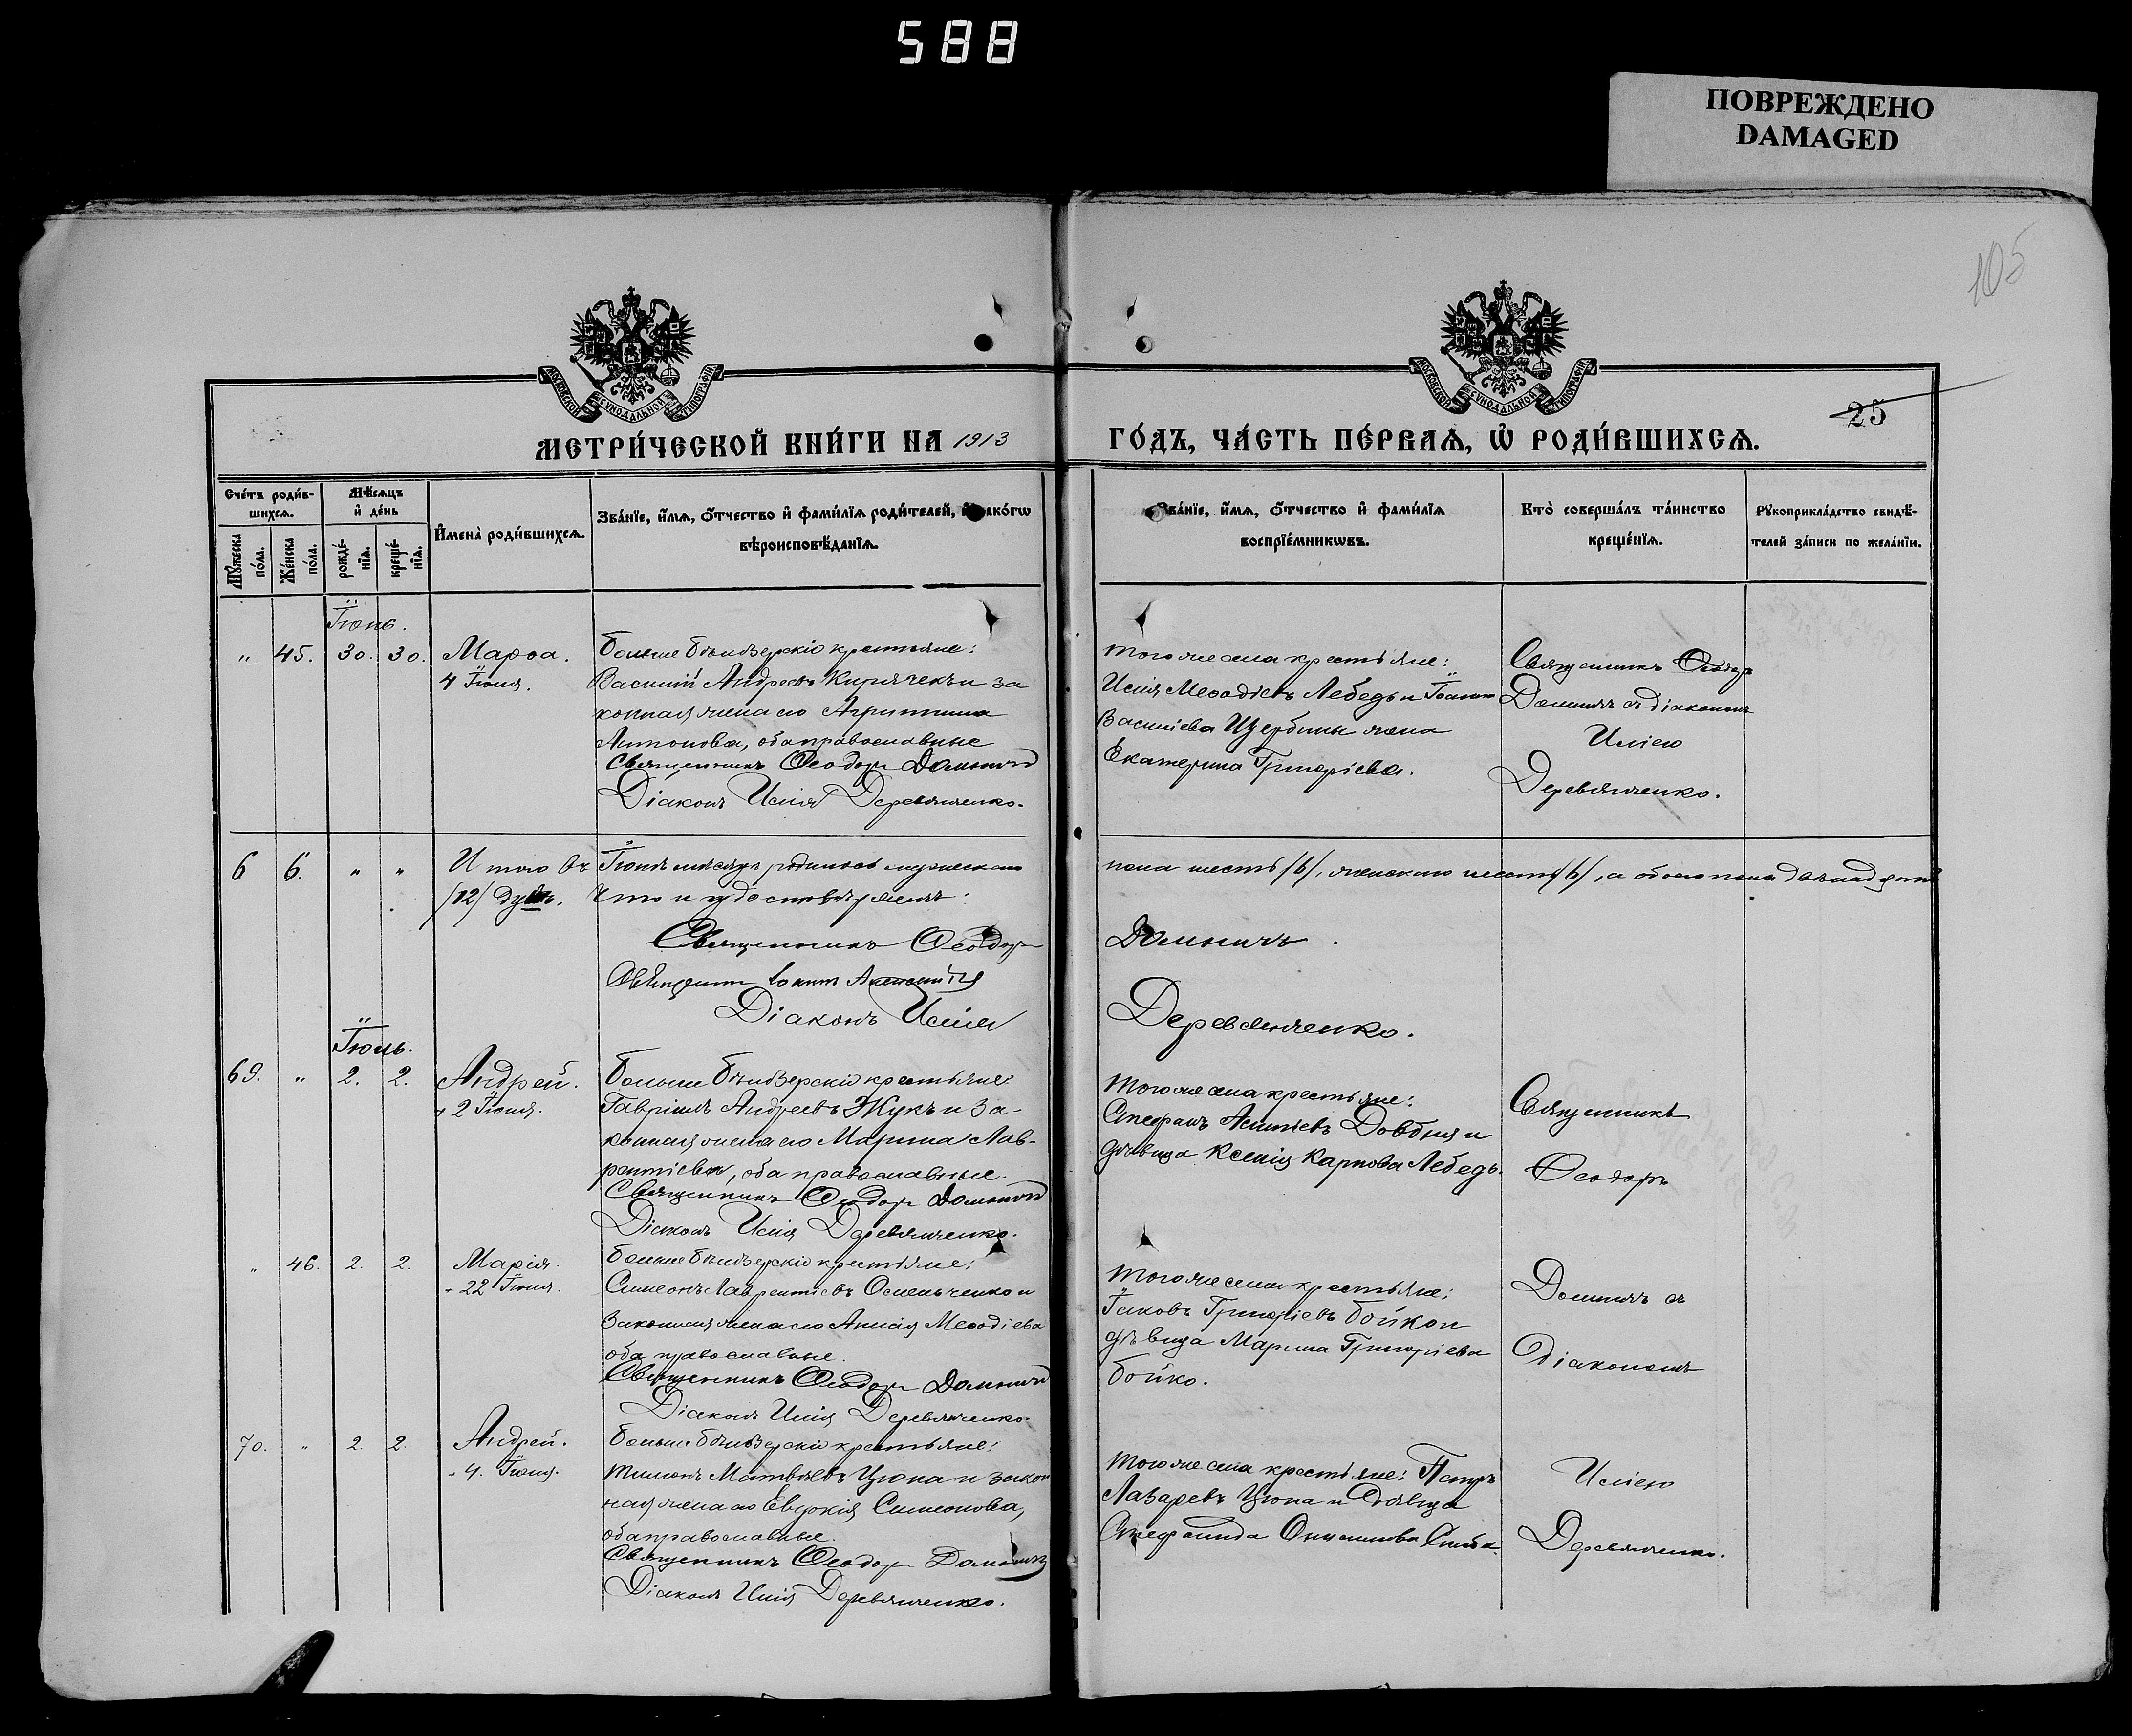 588
ПОВРЕЖДЕНО
DAMAGED
105
МОСКОВСКОЙ СѴНОДАЛЬНОЙ ТИПОГРАФІИ
МОСКОВСКОЙ СѴНОДАЛЬНОЙ ТИПОГРАФІИ
25
МЕТРИ́ЧЕСКОЙ КНИ́ГИ НА 1913
ГО́ДЪ, ЧА́СТЬ ПЕ́РВАѦ, Ѡ҆ РОДИ́ВШИХСѦ.
Сче́тъ роди́в-
шихсѧ.
Мѣ́сѧцъ
и҆ де́нь
Мꙋ́жеска
по́ла.
Же́нска
по́ла.
рожде́-
нїѧ.
креще́-
нїѧ.
И҆мена̀ роди́вшихсѧ.
Зва́нїе, и҆́мѧ, ѻ҆́тчество и҆ фами́лїѧ роди́телей, и҆ како́гѡ
вѣроисповѣ́данїѧ.
Зва́нїе, и҆́мѧ, ѻ҆́тчество и҆ фами́лїѧ
воспрїе́мникѡвъ.
Кто̀ соверша́лъ та́инство
креще́нїѧ.
Рꙋкоприкла́дство свидѣ́-
телей за́писи по жела́нїю.
Іюнь.
" 45. 30. 30. Марѳа.
4 Іюня.
Больше Бѣлозерскіе крестьяне:
Василій Андреевъ Кирячекъ и за
конная жена его Агриппина
Антонова, оба православные
Священникъ Ѳеодоръ Домничъ
Діаконъ Илія Деревянченко.
того же села крестьяне:
Илія Меѳодіевъ Лебедь и Іоанна
Василіева Щербины жена
Екатерина Григоріева.
Священникъ Ѳеодоръ
Домничъ съ діакономъ
Иліею
Деревянченко.
6 6. " " Итого въ Іюнѣ мѣсяцѣ родилось мужескаго
пола шесть /6/, женскаго шесть /6/, а обоего пола двѣнадцать
/12/ душъ. Что и удостовѣряемъ:
Священникъ Ѳеодоръ Домничъ.
Священникъ
Діаконъ Илія Деревянченко.
Іюль.
69. " 2. 2. Андрей.
2 Іюля.
Больше Бѣлозерскіе крестьяне:
Гавріилъ Андреевъ Жукъ и за-
конная жена его Марина Лав-
рентіева, оба православные.
Священникъ Ѳеодоръ Домничъ
Діаконъ Илія Деревянченко.
того же села крестьяне:
Стефанъ Довбня и
дѣвица Ксенія Карпова Лебедь.
Священникъ
Ѳеодоръ
" 46. 2. 2. Марія.
22 Іюня.
Больше Бѣлозерскіе крестьяне:
Симеонъ Лаврентіевъ Осельченко и
законная жена его Анна Меѳодіева
оба православные.
Священникъ Ѳеодоръ Домничъ
Діаконъ Илія Деревянченко.
того же села крестьяне:
Іаковъ Григоріевъ Бойко и
дѣвица Марина Григоріева
Бойко.
Домничъ съ
діакономъ
70. " 2. 2. Андрей.
4. Іюля.
Больше Бѣлозерскіе крестьяне:
Матвѣевъ Цюпа и закон
ная жена его Евдокія Симеонова,
оба православные.
Священникъ Ѳеодоръ Домничъ
Діаконъ Илія Деревянченко.
того же села крестьяне: Петръ
Лазаревъ Цюпа и дѣвица
Стефанида
Иліею
Деревянченко.